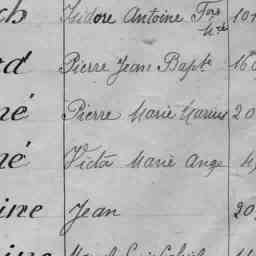 ch Isidore Antoine
rd Pierre Jean Bapte
né Pierre Marie Marius 20
né Victor Marie Ange
ine Jean 20